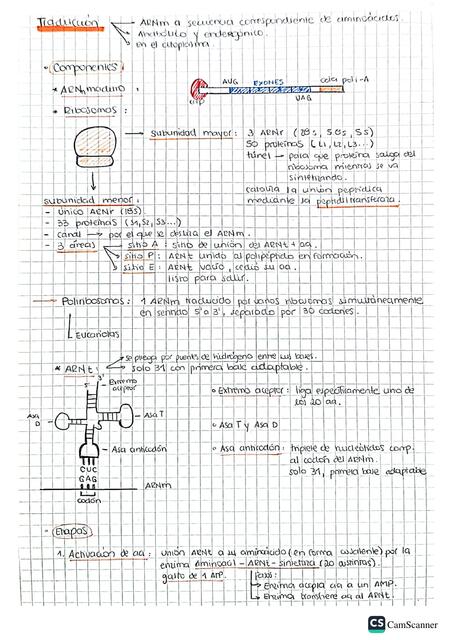 Traducción → ARNm a secuencia correspondiente de aminoácidos.
→ Anabólico y endergónico.
→ en el citoplasma.
• Componentes:
* ARNm maduro :
AUG EXONES cola poli-A
GTP UAG
* Ribosomas :
subunidad mayor: 3 ARNr (28s, 5.8s, 5s)
50 proteínas (L1, L2, L3...)
túnel → para que proteína salga del
ribosoma mientras se va
sintetizando.
cataliza la unión peptídica
mediante la peptidiltransferasa.
subunidad menor:
- único ARNr (18s).
- 33 proteínas (S1, S2, S3...)
- canal → por el que se desliza el ARNm.
- 3 áreas → sitio A : sitio de unión del ARNt + aa.
sitio P : ARNt unido al polipéptido en formación.
sitio E : ARNt vacío, cedió su aa.
listo para salir.
→ Polirribosomas : 1 ARNm traducido por varios ribosomas simultáneamente
en sentido 5' a 3', separado por 30 codones.
Eucariotas
* ARNt : → se pliega por puente de hidrógeno entre sus bases.
→ solo 31 con primera base adaptable.
5' 3' Extremo
aceptor
Asa
D
Asa T
Asa anticodón
CUC
GAG
ARNm
codón
• Extremo aceptor : liga específicamente uno de
los 20 aa.
• Asa T y Asa D
• Asa anticodón : triplete de nucleótidos comp.
al codón del ARNm.
solo 31, primera base adaptable
- Etapas
1. Activación de aa : unión ARNt a su aminoácido (en forma covalente) por la
enzima aminoacil - ARNt - sintetasa (20 distintas).
gasto de 1 ATP. Pasos:
→ Enzima acopla aa a un AMP.
→ Enzima transfiere aa al ARNt.
CS CamScanner